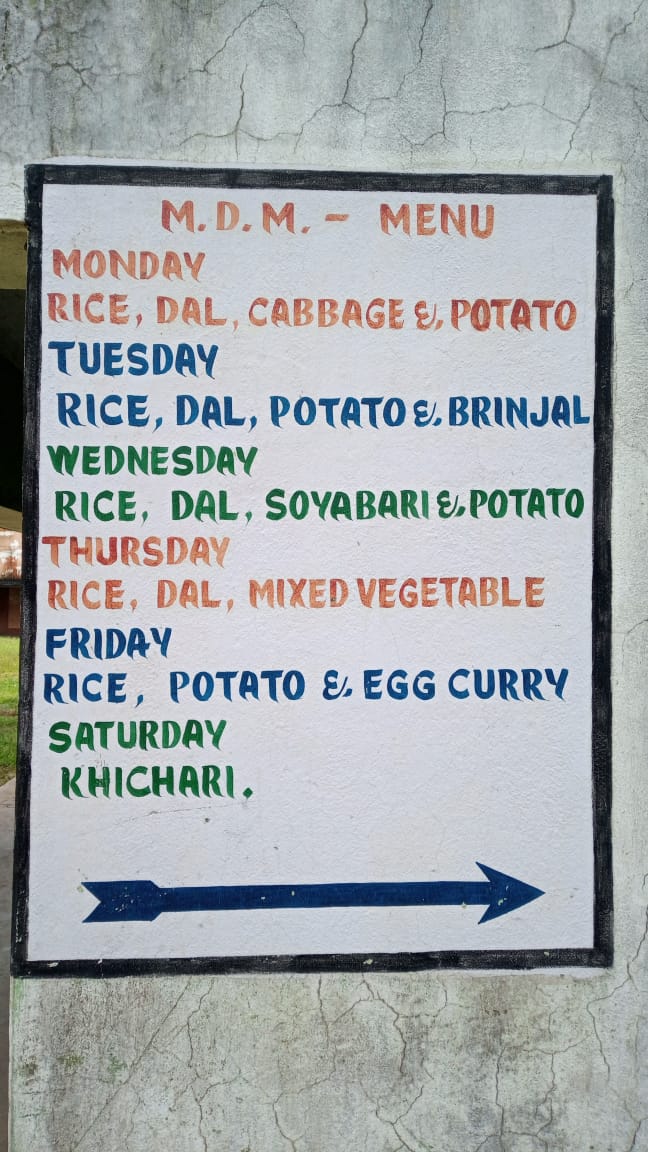 M.D.M. - MENU
MONDAY
RICE, DAL, CABBAGE & POTATO
TUESDAY
RICE, DAL, POTATO & BRINJAL
WEDNESDAY
RICE, DAL, SOYABARI & POTATO
THURSDAY
RICE, DAL, MIXED VEGETABLE
FRIDAY
RICE, POTATO & EGG CURRY
SATURDAY
KHICHARI.